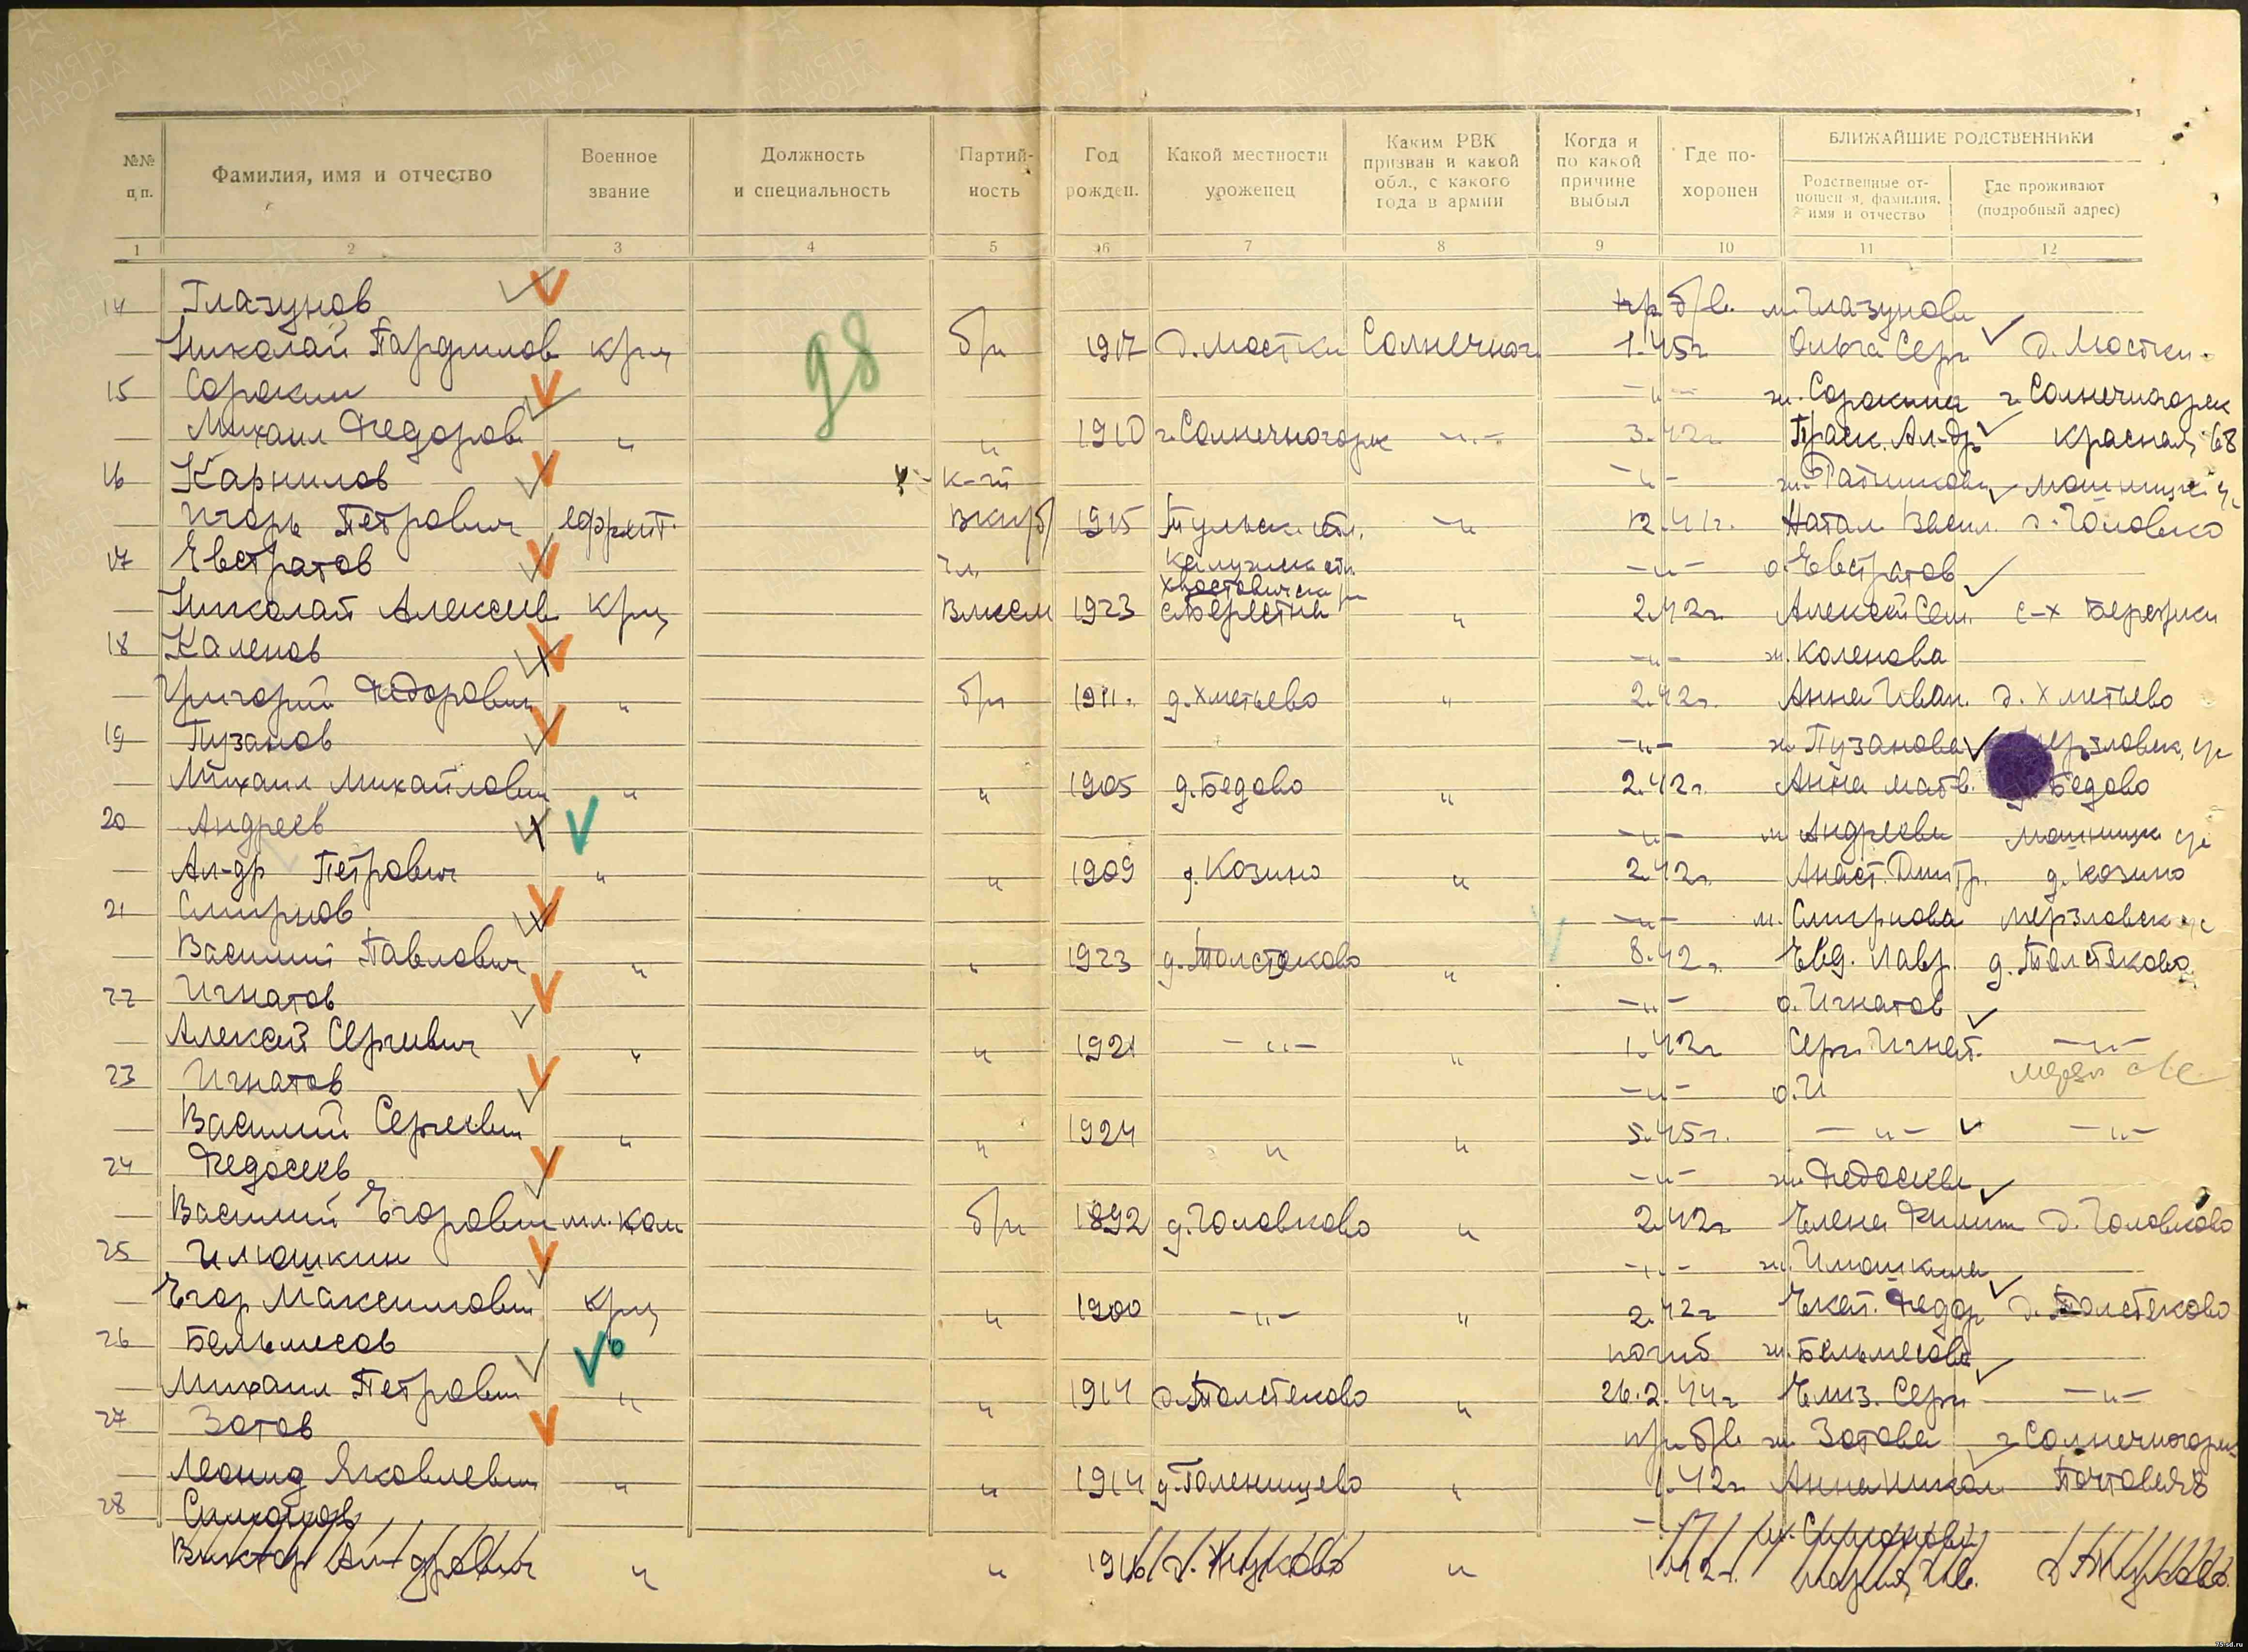 №№ п,п.
Фамилия, имя и отчество
Военное звание
Должность и специальность
Партий-ность
Год рожден.
Какой местности уроженец
Каким РВК призван и какой обл., с какого года в армии
Когда и по какой причине выбыл
Где по-хоронен
БЛИЖАЙШИЕ РОДСТВЕННИКИ
Родственные от-ношен-я, фамилия, имя и отчество
Где проживают (подробный адрес)
1 2 3 4 5 6 7 8 9 10 11 12
98
14 Глазунов пр б/в. м. Глазунова
Николай кр-ц б/п 1917 д. Мостки Солнечног. 1.45г Ольга Серг д. Мостки.
15 Сорокин -"- ж. Сорокина г Солнечногорск
Михаил Федоров. " " 1910 г. Солнечногорск -"- 3.42г. Праск. Ал-др Красная, 68
16 Карнилов к-т -"- ж.
Игорь Петрович ефрейт. ВКП(б) 1915 Тульск. обл. -"- 12.41г. Натал Васил. д. Головково
17 Евстратов чл. Калужск обл. -"- о. Евстратов
Хвостовичск р-н
Николай Алексеев кр-ц ВЛКСМ 1923 " 2.42г. Алексей Сем. с-х Березки
18 Каленов -"- ж. Каленова
Григорий Федорович " б/п 1911. д. Хметьево " 2.42г. Анна Иван. д. Хметьево
19 Пузанов -"- ж Пузанова с/с
Михаил Михайлович " " 1905 д. Бедово " 2.42г. Анна Матв. д. Бедово
20 Андреев -"- м Андреева с/с
Ал-др Петрович " " 1909 д. Козино " 2.42г. Анаст. Дмитр. д. Козино
21 Смирнов -"- м. Смирнова Мерзловск с/с
Василий Павлович " " 1923 д. Толстяково " 8.42г. Евд. Лавр. д. Толстяково
22 Игнатов -"- о. Игнатов
Алексей Сергеевич " " 1921 -"- " 1.42г Серг. Игнат. -"-
23 Игнатов -"- о. И
Василий Сергеевич " " 1924 " " 5.45г. -"- -"-
24 Федосеев -"- ж. Федосеева
Василий Егорович мл. ком б/п 1892 д. Головково " 2.42г Елена Филип д. Головково
25 Илюшкин -"- ж. Илюшкина
Егор Максимович кр-ц " 1900 -"- " 2.42г Екат. Федор д. Толстяково
26 Бельмесов погиб ж. Бельмесова
Михаил Петрович " " 1914 д. Толстяково " 26.2.44г Елиз. Серг -"-
27 Зотов пр. б/в ж Зотова г Солнечногорск
Леонид Яковлевич " " 1914 д. Голенищево " 1.42г Анна Никол. Почтовая 8
28 Симонов ж. Симонова
Виктор Ал-дрович " " 1916 д. Жуково " 1.42г. д Жуково.
ПАМЯТЬ НАРОДА
75-sd.ru